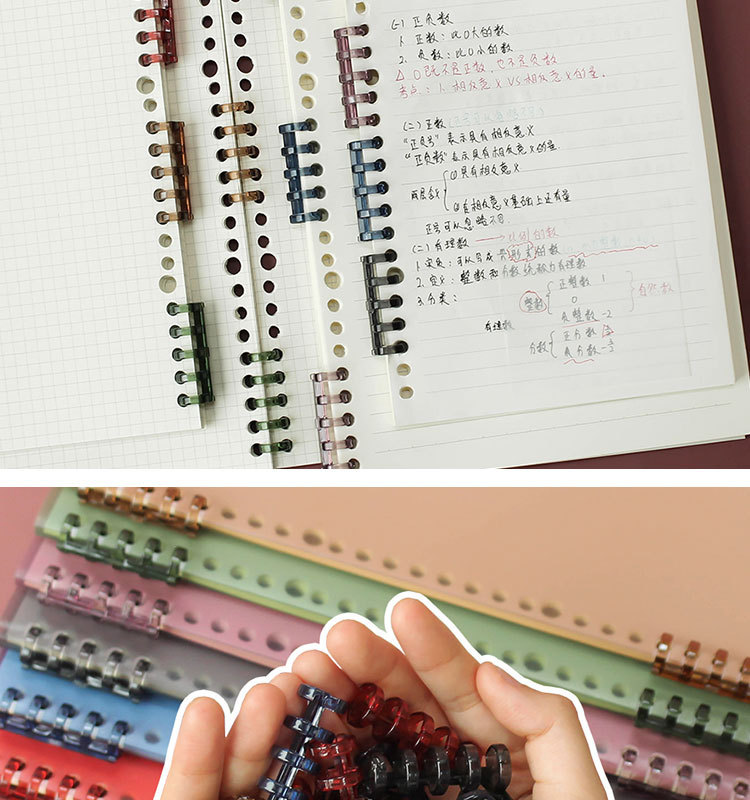 (一) 正负数
1. 正数：比0大的数
2. 负数：比0小的数
△ 0既不是正数，也不是负数
考点：1. 相反意义 VS 相反意义的量.
(二) 正数
"正负号" 表示具有相反意义
"正负数" 表示具有相反意义的量
两层含义
① 具有相反意义
② 在相反意义基础上还有量
正号可以忽略不写.
(二) 有理数
1. 定义：可以写成 形式的数
2. 定义：整数和分数统称为有理数
3. 分类：
有理数
整数
正整数 1
0
负整数 -2
自然数
分数
正分数
负分数 -½